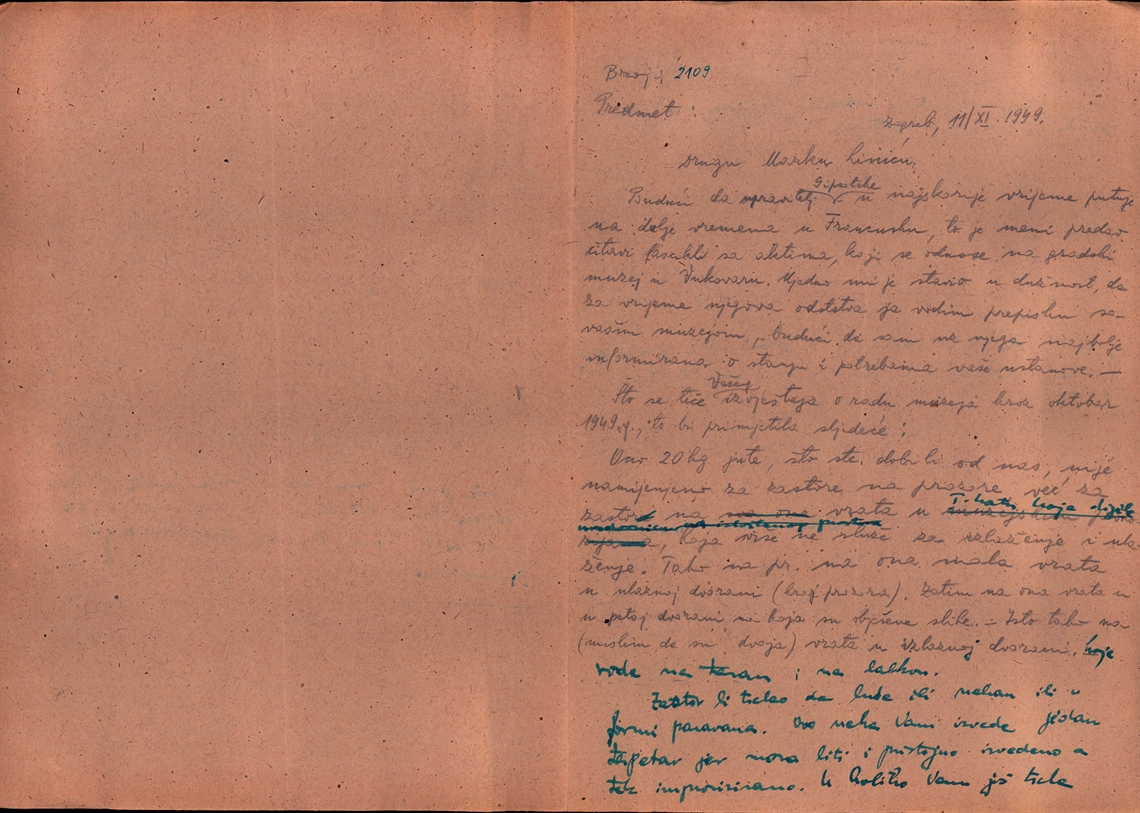 Broj: 2109
Predmet:
Zagreb, 11/XI. 1949.
Drugu Marku
Gipoteke
Budući da upravitelj u najskorije vrijeme putuje
na dulje vremena u Francusku, to je meni predao
čitavi fascikl sa aktima, koji se odnose na gradski
muzej u Vukovaru. Ujedno mi je stavio u dužnost, da
za vrijeme njegova odststva ja vodim prepisku sa
vašim muzejom, budući da sam uz njega najbolje
informirana o stanju i potrebama vaše ustanove. —
Vašeg
Što se tiče izvještaja o radu muzeja kroz oktobar
1949. g., to bi primjetila sljedeće:
Ono 20 kg jute, što ste dobili od nas, nije
namijenjeno za zastore na prozore već za
zastor na vrata u
koja više ne služe za izlaženje i ula-
ženje. Tako na pr. na ona mala vrata
u ulaznoj dvorani (kraj prozora). Zatim na ona vrata u
u petoj dvorani na koja su obješene slike. – Isto tako na
(mislim da su dvoja) vrata u izlaznoj dvorani, koje
vode na terasu i na balkon.
Zastor bi trebao da bude ili neban ili u
formi paravana. Ovo neka Vam izvede jedan
tapetar jer mora biti i pristojno izvedeno a
ne improvizirano. U koliko Vam još treba